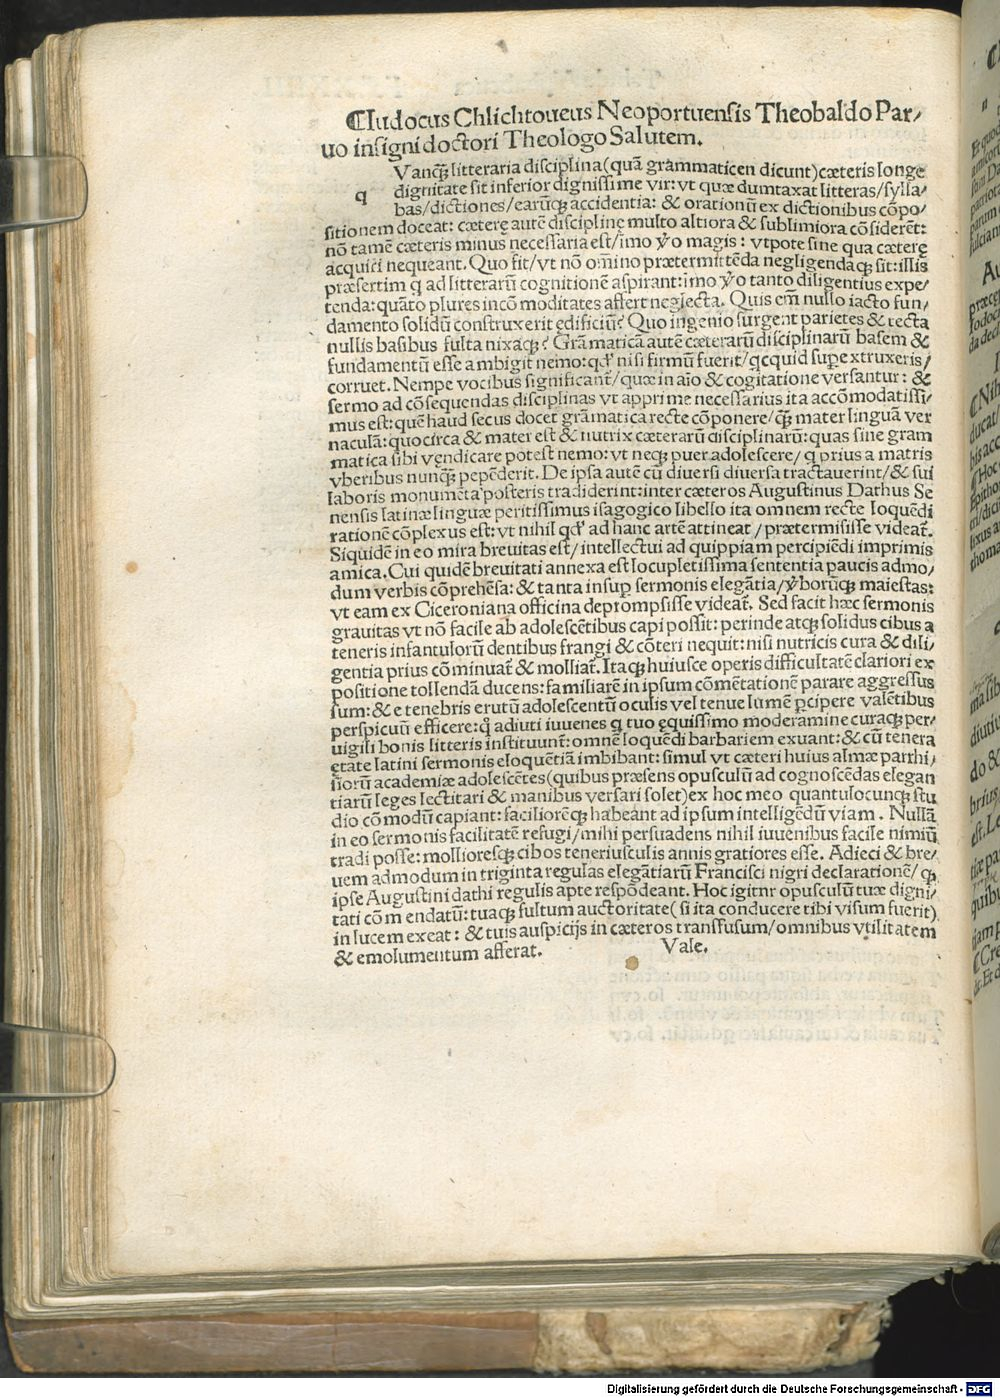 ¶Iudocus Chlichtoueus Neoportuensis Theobaldo Par/
uo insigni doctori Theologo Salutem.
q Vanꝗ̃ litteraria disciplina (quã grammaticen dicunt) cæteris longe
dignitate sit inferior dignissime vir: vt quæ dumtaxat litteras/sylla/
bas/dictiones/earũꝗ accidentia: & orationũ ex dictionibus cõpo/
sitionem doceat: cæterę autẽ disciplinę multo altiora & sublimiora cõsiderẽt:
nõ tamẽ cæteris minus necessaria est/imo ꝟo magis: vtpote sine qua cæterę
acquiri nequeant. Quo fit/vt nõ oĩno prætermittẽda negligendaꝗ sit: illis
præsertim q ad litterarũ cognitionẽ aspirant: imo ꝟo tanto diligentius expe/
tenda: quãto plures incõmoditates affert neglecta. Quis em̃ nullo iacto fun/
damento solidũ construxerit edificiũ? Quo ingenio surgent parietes & tecta
nullis basibus fulta nixaꝗ? Grãmaticã autẽ cæterarũ disciplinarũ basem &
fundamentũ esse ambigit nemo: qđ nisi firmũ fuerit/qcquid suꝑextruxeris/
corruet. Nempe vocibus significant̃/quæ in aĩo & cogitatione versantur: &
sermo ad cõsequendas disciplinas vt apprime necessarius ita accõmodatissi/
mus est: quẽ haud secus docet grãmatica recte cõponere/ꝗ̃ mater linguã ver
naculã: quocirca & mater est & nutrix cæterarũ disciplinarũ: quas sine gram
matica sibi vendicare potest nemo: vt neꝗ puer adolescere/q prius a matris
vberibus nunꝗ̃ pepẽderit. De ipsa autẽ cũ diuersi diuersa tractauerint/& sui
laboris monumẽta posteris tradiderint: inter cæteros Augustinus Dathus Se
nensis latinæ linguæ peritissimus isagogico libello ita omnem recte loquẽdi
rationẽ cõplexus est: vt nihil qđ ad hanc artẽ attineat/prætermisisse videat̃.
Siquidẽ in eo mira breuitas est/intellectui ad quippiam percipiẽdi imprimis
amica. Cui quidẽ breuitati annexa est locupletissima sententia paucis admo/
dum verbis cõprehẽsa: & tanta insuꝑ sermonis elegãtia/ꝟborũꝗ maiestas:
vt eam ex Ciceroniana officina deprompsisse videat̃. Sed facit hæc sermonis
grauitas vt nõ facile ab adolescẽtibus capi possit: perinde atꝗ solidus cibus a
teneris infantulorũ dentibus frangi & cõteri nequit: nisi nutricis cura & dili/
gentia prius cõminuat̃ & molliat̃. Itaꝗ huiusce operis difficultatẽ clariori ex
positione tollendã ducens: familiarẽ in ipsum cõmẽtationẽ parare aggressus
sum: & e tenebris erutũ adolescentũ oculis vel tenue lumẽ ꝑcipere valẽtibus
perspicuũ efficere: q̃ adiuti iuuenes q tuo ęquissimo moderamine curaꝗ per/
uigili bonis litteris instituunt̃: omnẽ loquẽdi barbariem exuant: & cũ tenera
ętate latini sermonis eloquẽtiã imbibant: simul vt cæteri huius almæ parrhi/
siorũ academiæ adolescẽtes (quibus præsens opusculũ ad cognoscẽdas elegan
tiarũ leges lectitari & manibus versari solet) ex hoc meo quantulocunꝗ stu
dio cõmodũ capiant: facilioremꝗ habeant ad ipsum intelligẽdũ viam. Nullã
in eo sermonis facilitatẽ refugi/mihi persuadens nihil iuuenibus facile nimiũ
tradi posse: molliores ꝗ cibos teneriusculis annis gratiores esse. Adieci & bre/
uem admodum in triginta regulas elegãtiarũ Francisci nigri declarationẽ/ꝗ
ipse Augustini dathi regulis apte respõdeant. Hoc igitnr opusculũ tuæ digni/
tati cõmendatũ: tuaꝗ fultum auctoritate (si ita conducere tibi visum fuerit)
in lucem exeat: & tuis auspicijs in cæteros transfusum/omnibus vtilitatem
& emolumentum afferat. Vale.
Digitalisierung gefördert durch die Deutsche Forschungsgemeinschaft - DFG